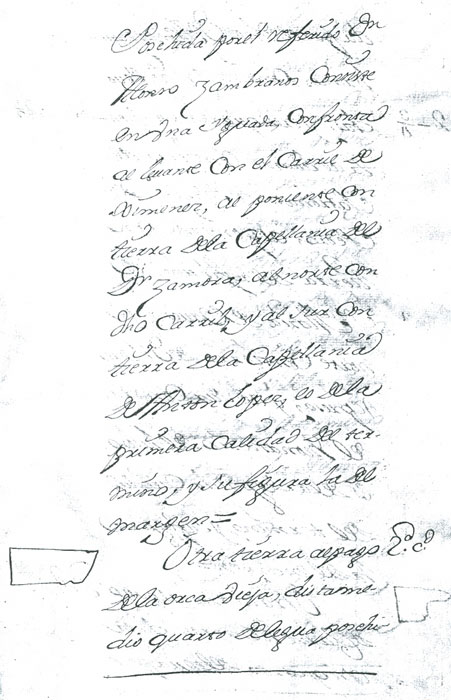 Posehida por el referido Dn
Alonso Zambrano: Consiste
en Una Yguada, Confronta
al lebante Con el Carril de
Ximenez, al poniente con
tierra dela Capellania del
Dr Zamora, al norte con
dho Carril, y al Sur Con
tierra dela Capellania
de Anton Lopez, es dela
primera Calidad del ter-
mino, y su figura la del
margen =
Otra tierra al pago 2ª cª
dela orca Vieja, dista me-
dio quarto de legua poschi